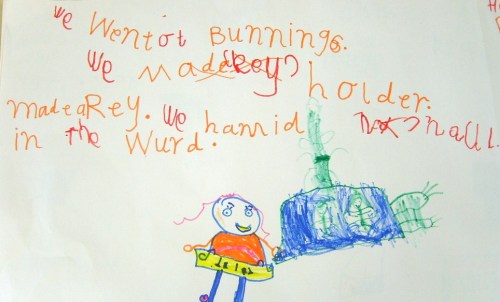 We Wentot Bunnings.
We Madea Rey) holder.
madeaRey. We hamid nall.
in the Wurd.